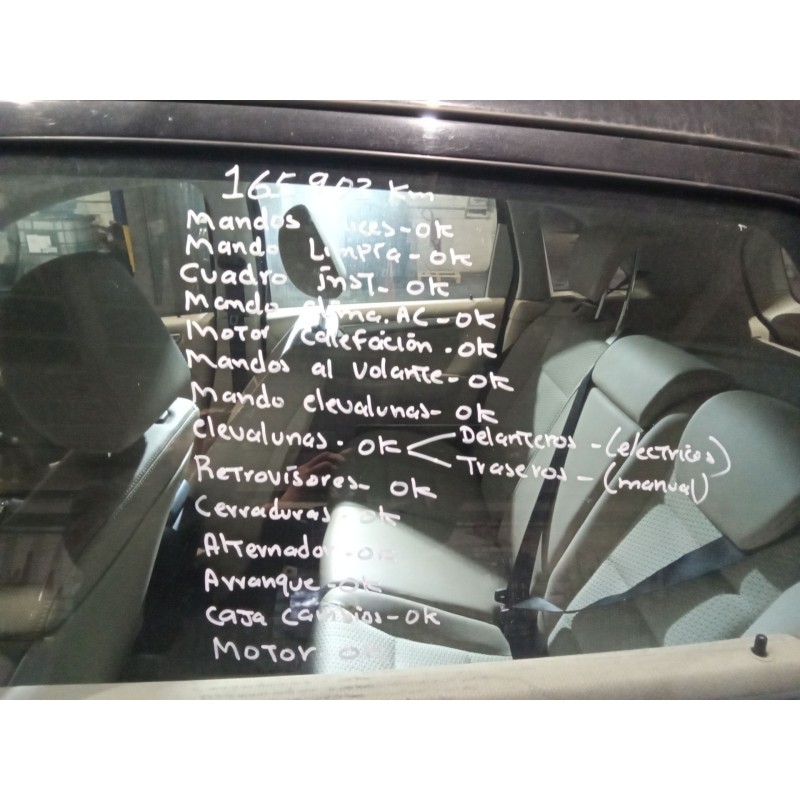 165.903 Km
Mandos luces-OK
Mando Limpia-OK
Cuadro inst-OK
Mando clima.AC-OK
Motor Calefación.OK
Mandos al volante-OK
Mando elevalunas-OK
elevalunas.OK Delanteros-(electricos)
Traseros-(manual)
Retrovisores-OK
Cerraduras-OK
Alternador-OK
Arranque-OK
Caja cambios-OK
MOTOR OK